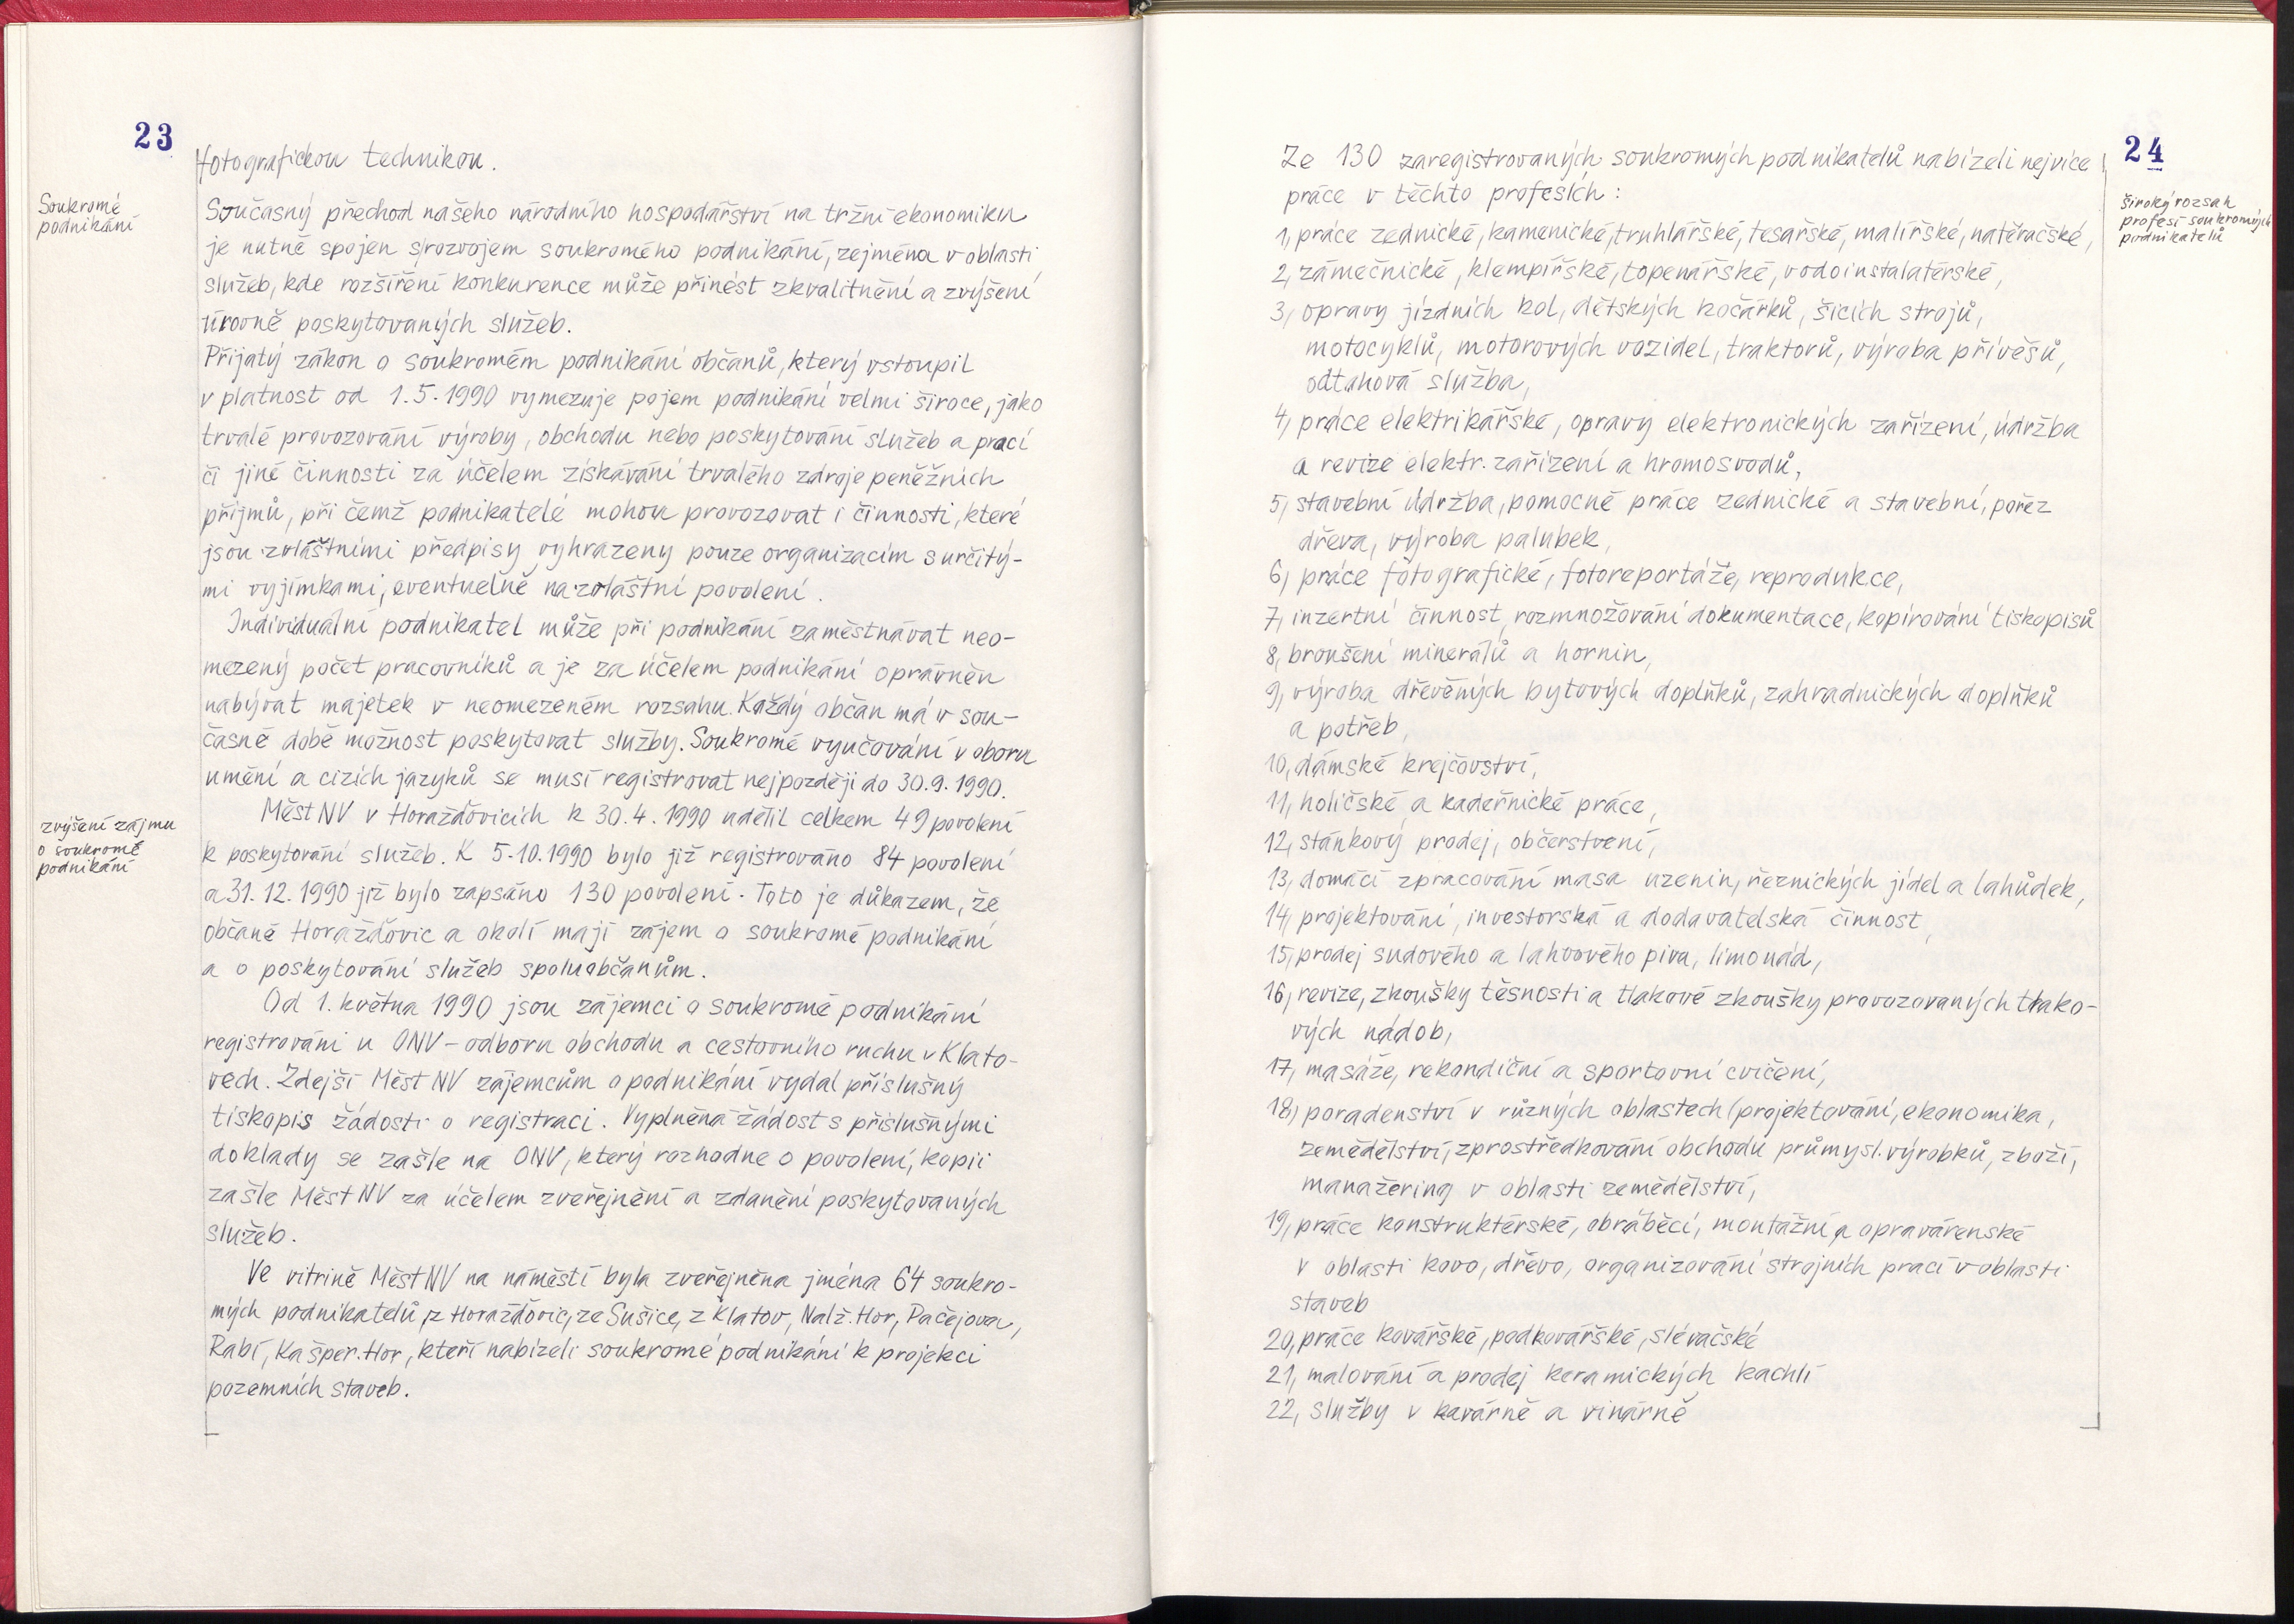 23
fotografickou technikou.
Soukromé
podnikání
Současný přechod našeho národního hospodářství na tržní ekonomiku
je nutně spojen s rozvojem soukromého podnikání, zejména v oblasti
služeb, kde rozšíření konkurence může přinést zkvalitnění a zvýšení
úrovně poskytovaných služeb.
Přijatý zákon o soukromém podnikání občanů, který vstoupil
v platnost od 1.5.1990 vymezuje pojem podnikání velmi široce, jako
trvalé provozování výroby, obchodu nebo poskytování služeb a prací
či jiné činnosti za účelem získávání trvalého zdroje peněžních
příjmů, při čemž podnikatelé mohou provozovat i činnosti, které
jsou zvláštními předpisy vyhrazeny pouze organizacím s určitý-
mi vyjímkami, eventuelně na zvláštní povolení.
Individuální podnikatel může při podnikání zaměstnávat neo-
mezený počet pracovníků a je za účelem podnikání oprávněn
nabývat majetek v neomezeném rozsahu. Každý občan má v sou-
časné době možnost poskytovat služby. Soukromé vyučování v oboru
umění a cizích jazyků se musí registrovat nejpozději do 30.9.1990.
zvýšení zájmu
o soukromé
podnikání
MěstNV v Horažďovicích k 30.4.1990 udělil celkem 49 povolení
k poskytování služeb. K 5.10.1990 bylo již registrováno 84 povolení
a 31.12.1990 již bylo zapsáno 130 povolení. Toto je důkazem, že
občané Horažďovic a okolí mají zájem o soukromé podnikání
a o poskytování služeb spoluobčanům.
Od 1. května 1990 jsou zájemci o soukromé podnikání
registrováni u ONV - odboru obchodu a cestovního ruchu v Klato-
vech. Zdejší MěstNV zájemcům o podnikání vydal příslušný
tiskopis žádosti o registraci. Vyplněná žádost s příslušnými
doklady se zašle na ONV, který rozhodne o povolení, kopii
zašle MěstNV za účelem zveřejnění a zdanění poskytovaných
služeb.
Ve vitríně MěstNV na náměstí byla zveřejněna jména 64 soukro-
mých podnikatelů, z Horažďovic, ze Sušice, z Klatov, Nalž. Hor, Pačejova,
Rabí, Kašper. Hor, kteří nabízeli soukromé podnikání k projekci
pozemních staveb.
24
široký rozsah
profesí soukromých
podnikatelů
Ze 130 zaregistrovaných soukromých podnikatelů nabízeli nejvíce
práce v těchto profesích:
1, práce zednické, kamenické, truhlářské, tesařské, malířské, natěračské,
2, zámečnické, klempířské, topenářské, vodoinstalatérské,
3, opravy jízdních kol, dětských kočárků, šicích strojů,
motocyklů, motorových vozidel, traktorů, výroba přívěsů,
odtahová služba,
4, práce elektrikářské, opravy elektronických zařízení, údržba
a revize elektr. zařízení a hromosvodů,
5, stavební údržba, pomocné práce zednické a stavební, pořez
dřeva, výroba palubek,
6, práce fotografické, fotoreportáže, reprodukce,
7, inzertní činnost, rozmnožování dokumentace, kopírování tiskopisů
8, broušení minerálů a hornin,
9, výroba dřevěných bytových doplňků, zahradnických doplňků
a potřeb,
10, dámské krejčovství,
11, holičské a kadeřnické práce,
12, stánkový prodej, občerstvení,
13, domácí zpracování masa uzenin, řeznických jídel a lahůdek,
14, projektování, investorská a dodavatelská činnost,
15, prodej sudového a lahvového piva, limonád,
16, revize, zkoušky těsnosti a tlakové zkoušky provozovaných tlako-
vých nádob,
17, masáže, rekondiční a sportovní cvičení,
18, poradenství v různých oblastech (projektování, ekonomika,
zemědělství, zprostředkování obchodu průmysl. výrobků, zboží,
manažering v oblasti zemědělství,
19, práce konstruktérské, obráběcí, montážní a opravárenské
v oblasti kovo, dřevo, organizování strojních prací v oblasti
staveb
20, práce kovářské, podkovářské, slévačské
21, malování a prodej keramických kachlí
22, služby v kavárně a vinárně